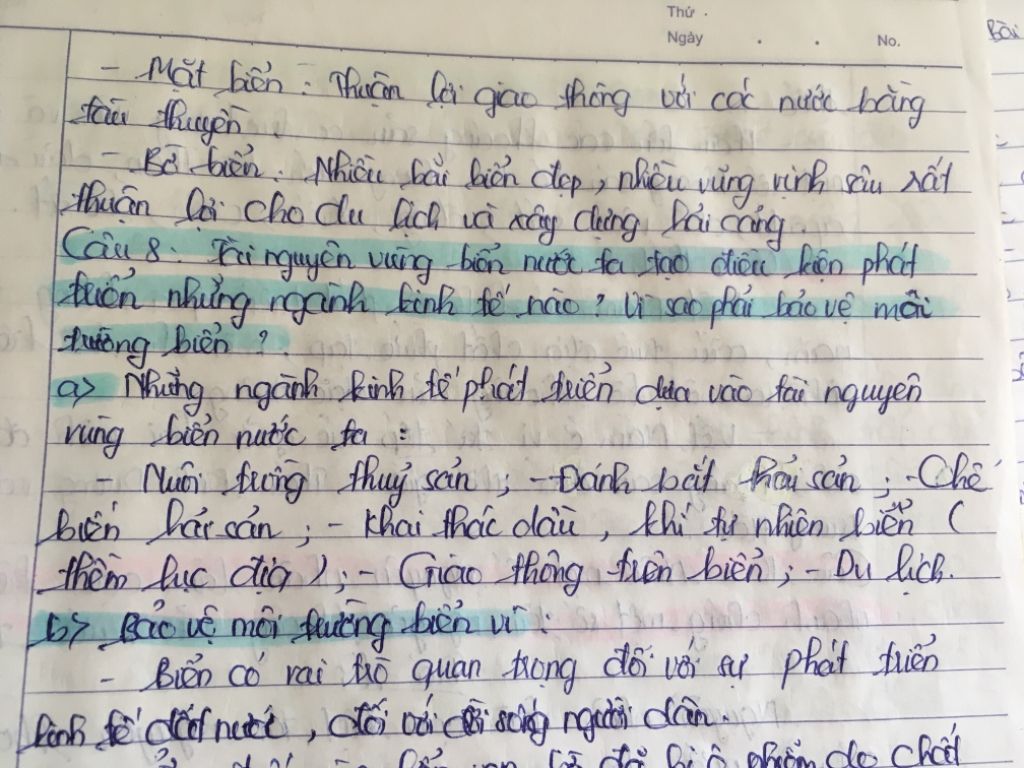 Thứ .
Ngày . . No.
Bài
- Mặt biển : Thuận lợi giao thông với các nước bằng
tàu thuyền
- Bờ biển : Nhiều bãi biển đẹp, nhiều vũng vịnh sâu rất
thuận lợi cho du lịch và xây dựng hải cảng
Câu 8 : Tài nguyên vùng biển nước ta tạo điều kiện phát
triển những ngành kinh tế nào ? Vì sao phải bảo vệ môi
trường biển ?
a> Những ngành kinh tế phát triển dựa vào tài nguyên
vùng biển nước ta :
- Nuôi trồng thuỷ sản ; - Đánh bắt hải sản ; - Chế
biến hải sản ; - Khai thác dầu, khí tự nhiên biển (
thềm lục địa ) ; - Giao thông trên biển ; - Du lịch.
b> Bảo vệ môi trường biển vì :
- Biển có vai trò quan trọng đối với sự phát triển
kinh tế đất nước, đối với đời sống người dân.
bị ô nhiễm do chất